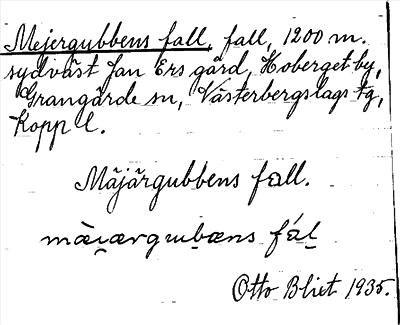 Mejergubbens fall, fall, 1200 m.
sydväst Jan Ers gård, Hoberget by,
Grangärde sn, Västerbergslags tg,
Kopp l.
Mäjärgubbens fall.
Otto Blixt 1935.